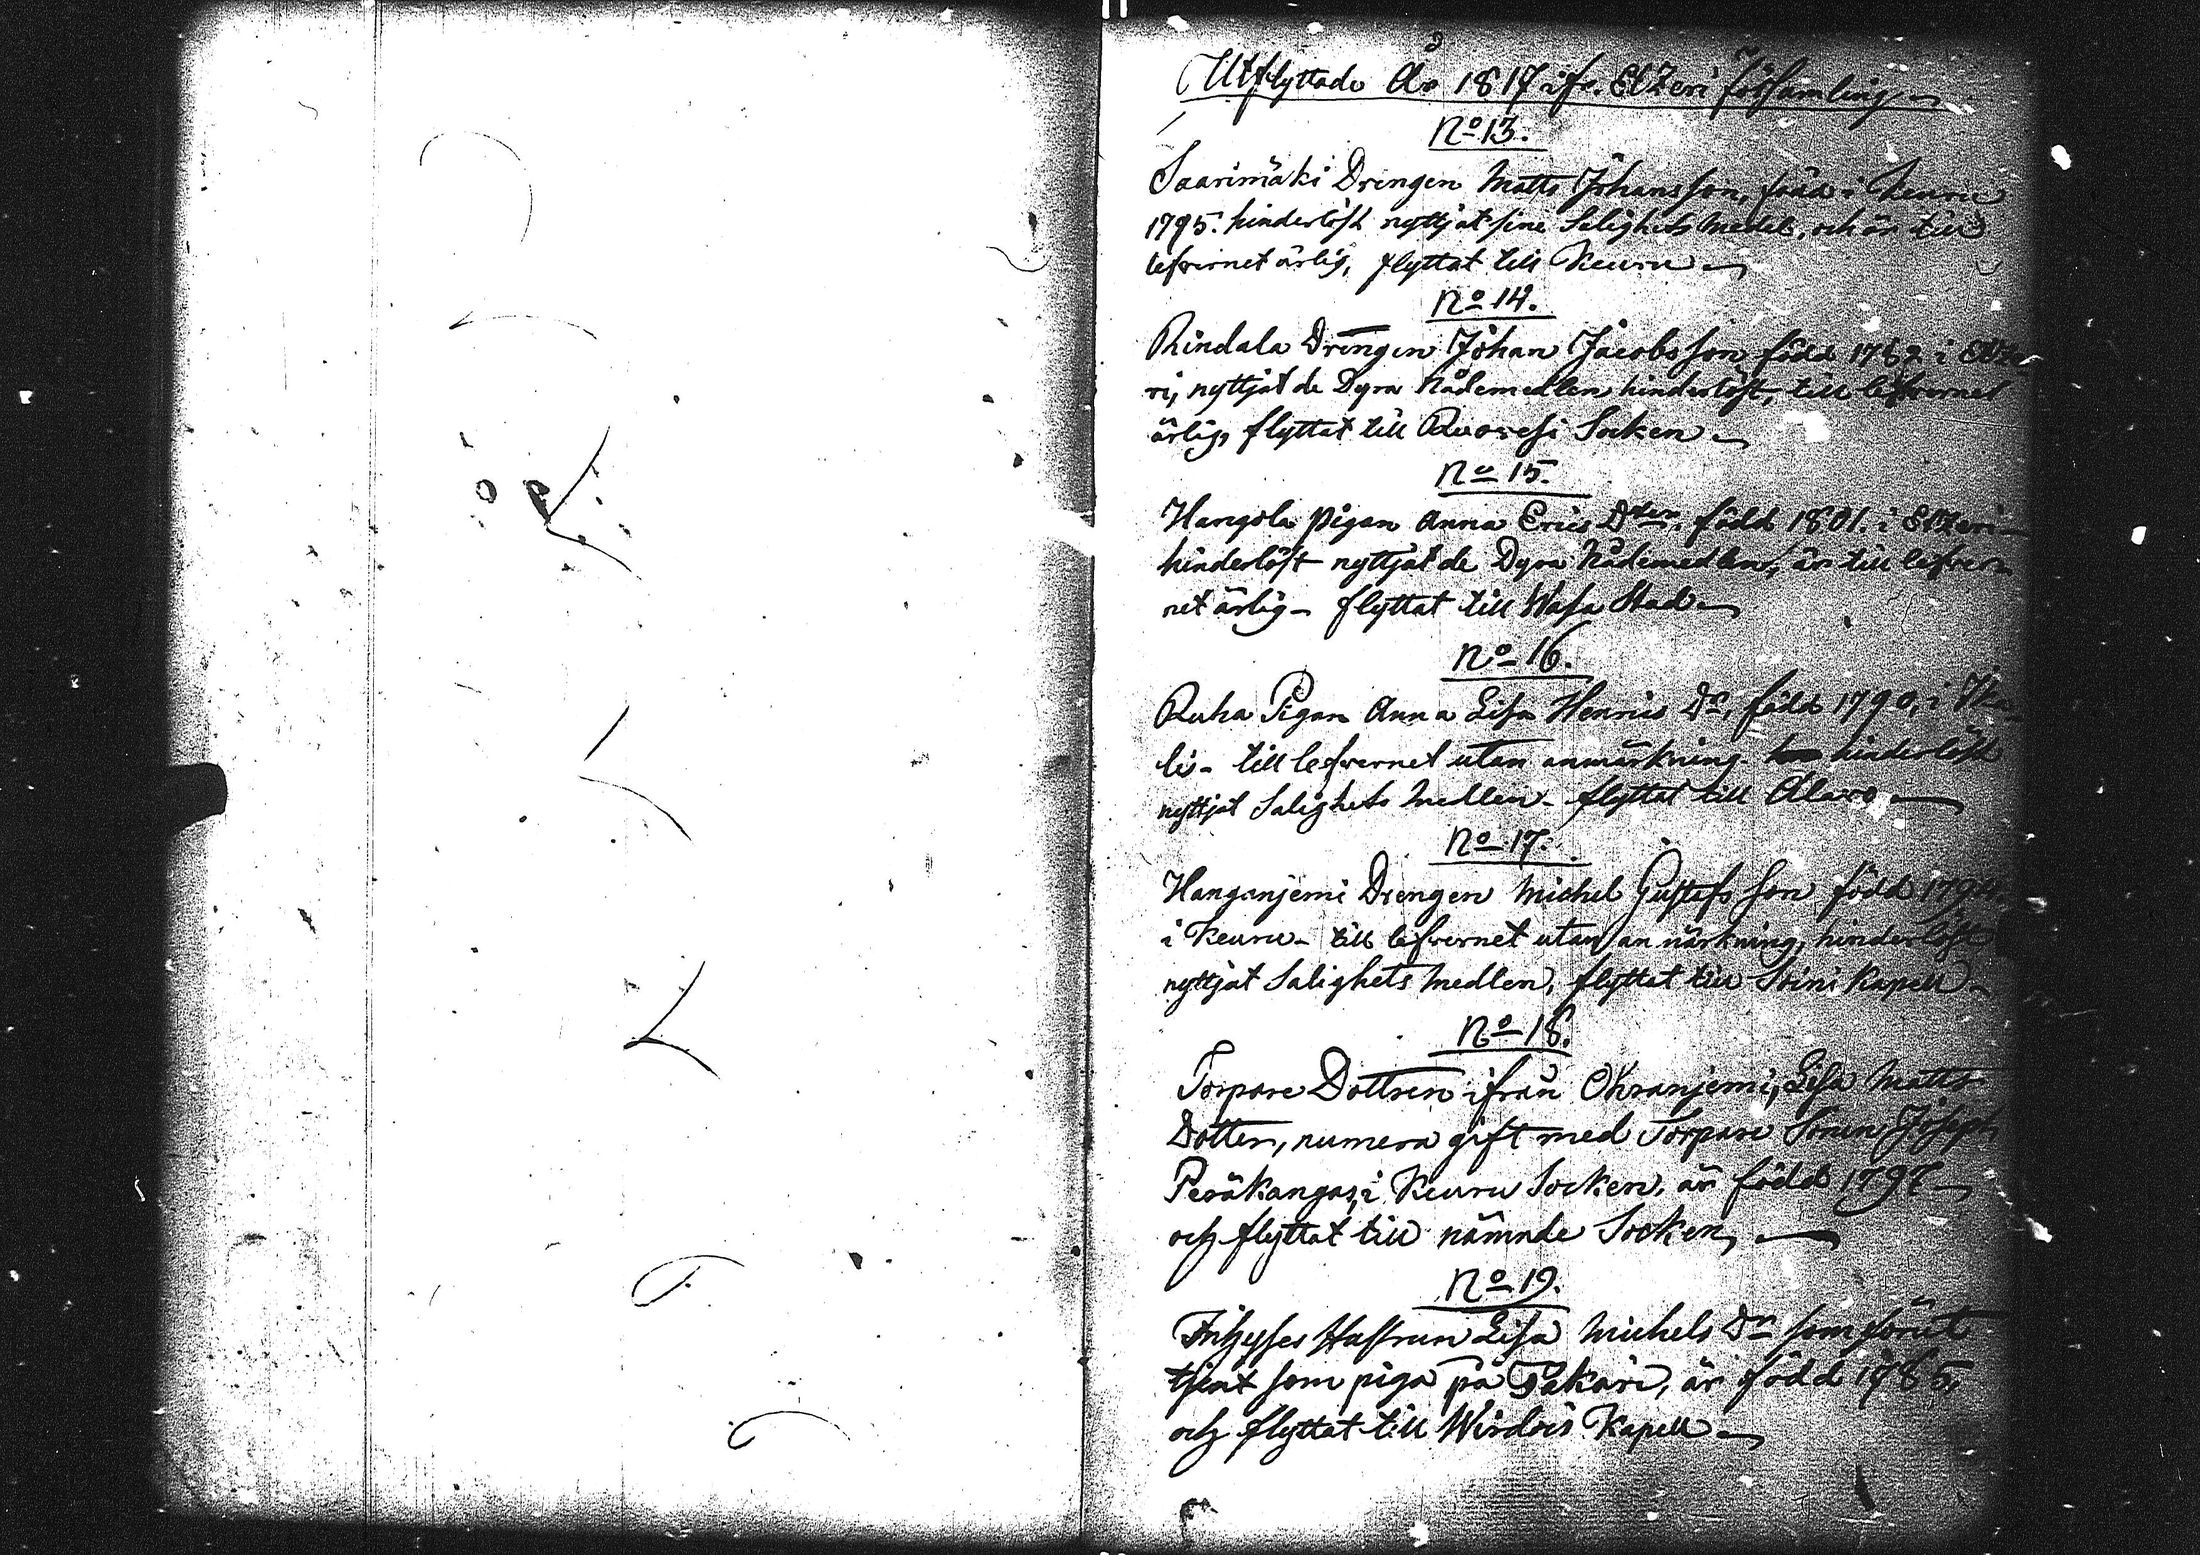 Utflyttade År 1817 ifr. Etzeri församling
No 13.
Saarimäki Drengen Matts Johansson, född i Keuru
1795. hinderlöst nyttjat sine Salighets Medel, och är till
lefvernet ärlig, flyttat till Keuru
No 14.
Rindala Drengen Johan Jacobsson född 1762 i Etze
ri, nyttjat de Dyra Nådemedlen hinderlöst, till lefvernet
ärlig, flyttat till Ruovesi Socken
No 15.
Hangola pigan Anna Erics Dter. född 1801. i Etzeri
hinderlöst nyttjat de Dyra Nådemedlen, är till lefver-
net ärlig - flyttat till Wasa Stad
No 16.
Ruha Pigan Anna Lisa Henrics Dr, född 1790, i
li - till lefvernet utan anmärkning hinderlöst
nyttjat Salighets Medlen - flyttat till Alavo
No 17.
Hanganjemi Drengen Michel Gustafs Son född
i Keuru - till lefvernet utan anmärkning, hinderlöst
nyttjat Salighets Medlen, flyttat till Soini Kapell
No 18.
Torpare Dottren ifrån Ohranjemi, Lisa Matts
Dotter, numera gift med Torpare Sonen Joseph
Peräkangas, i Keuru Socken, är född 1797
och flyttat till nämnde Socken,
No 19.
Hustrun Lisa Michels Dr som förut
tjent som piga på Pakari, är född 1785,
och flyttat till Wirdois Kapell